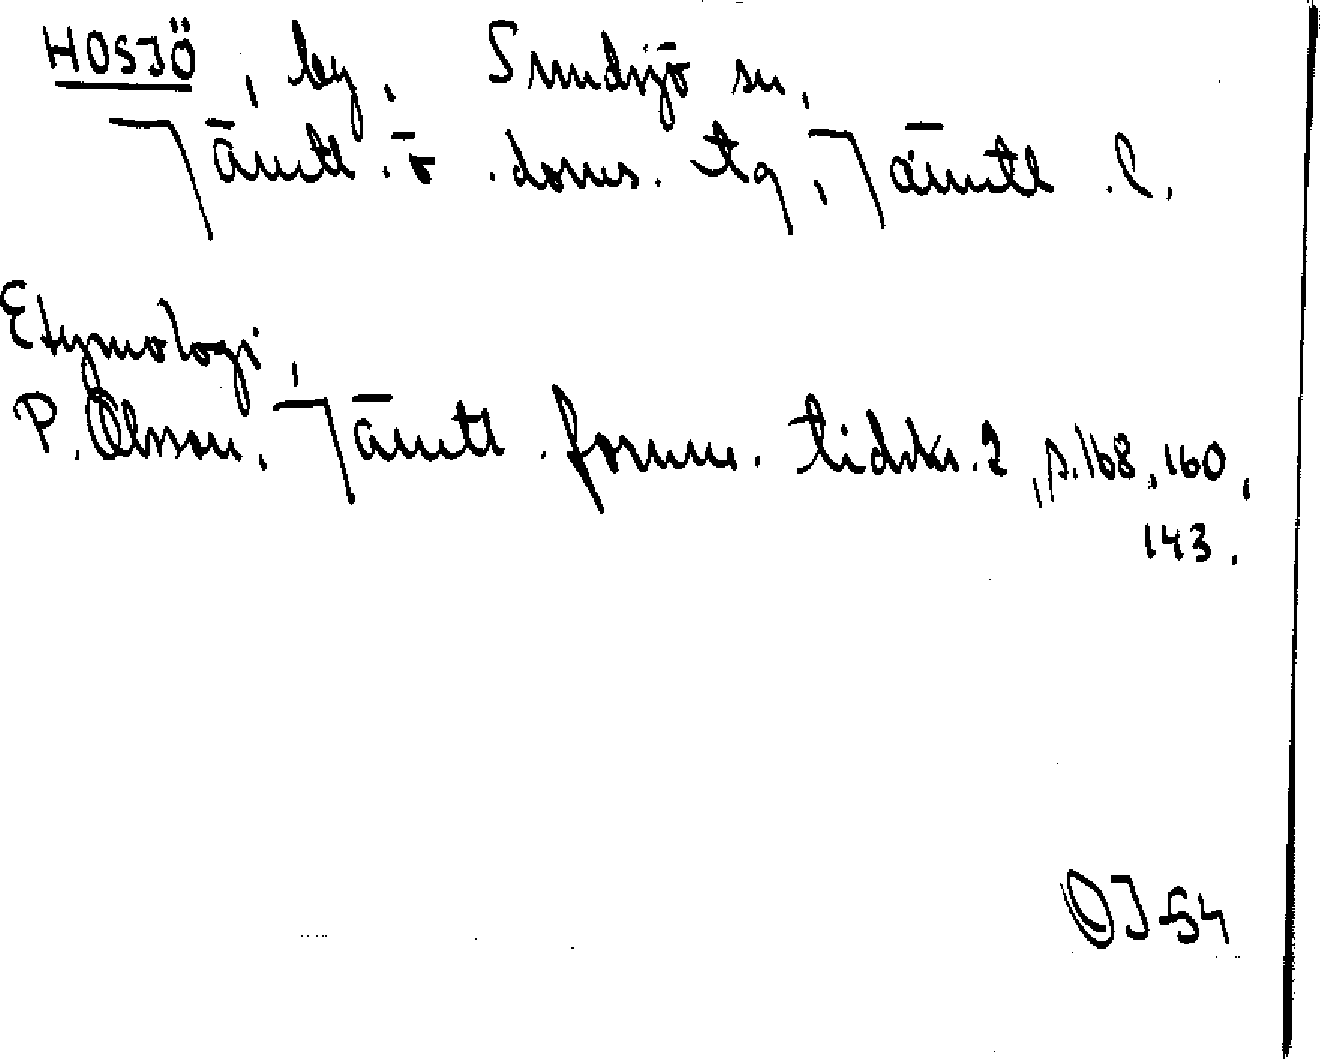 HOSJÖ, by, Sundsjö sn,
Jämtl. ö. doms. tg, Jämtl. l.
Etymologi,
P. Olsson, Jämtl. fornm. tidskr. 2, s. 168, 160,
143.
OJ 54